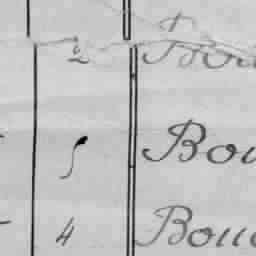 2 Bou
5 Bou
4 Bouc